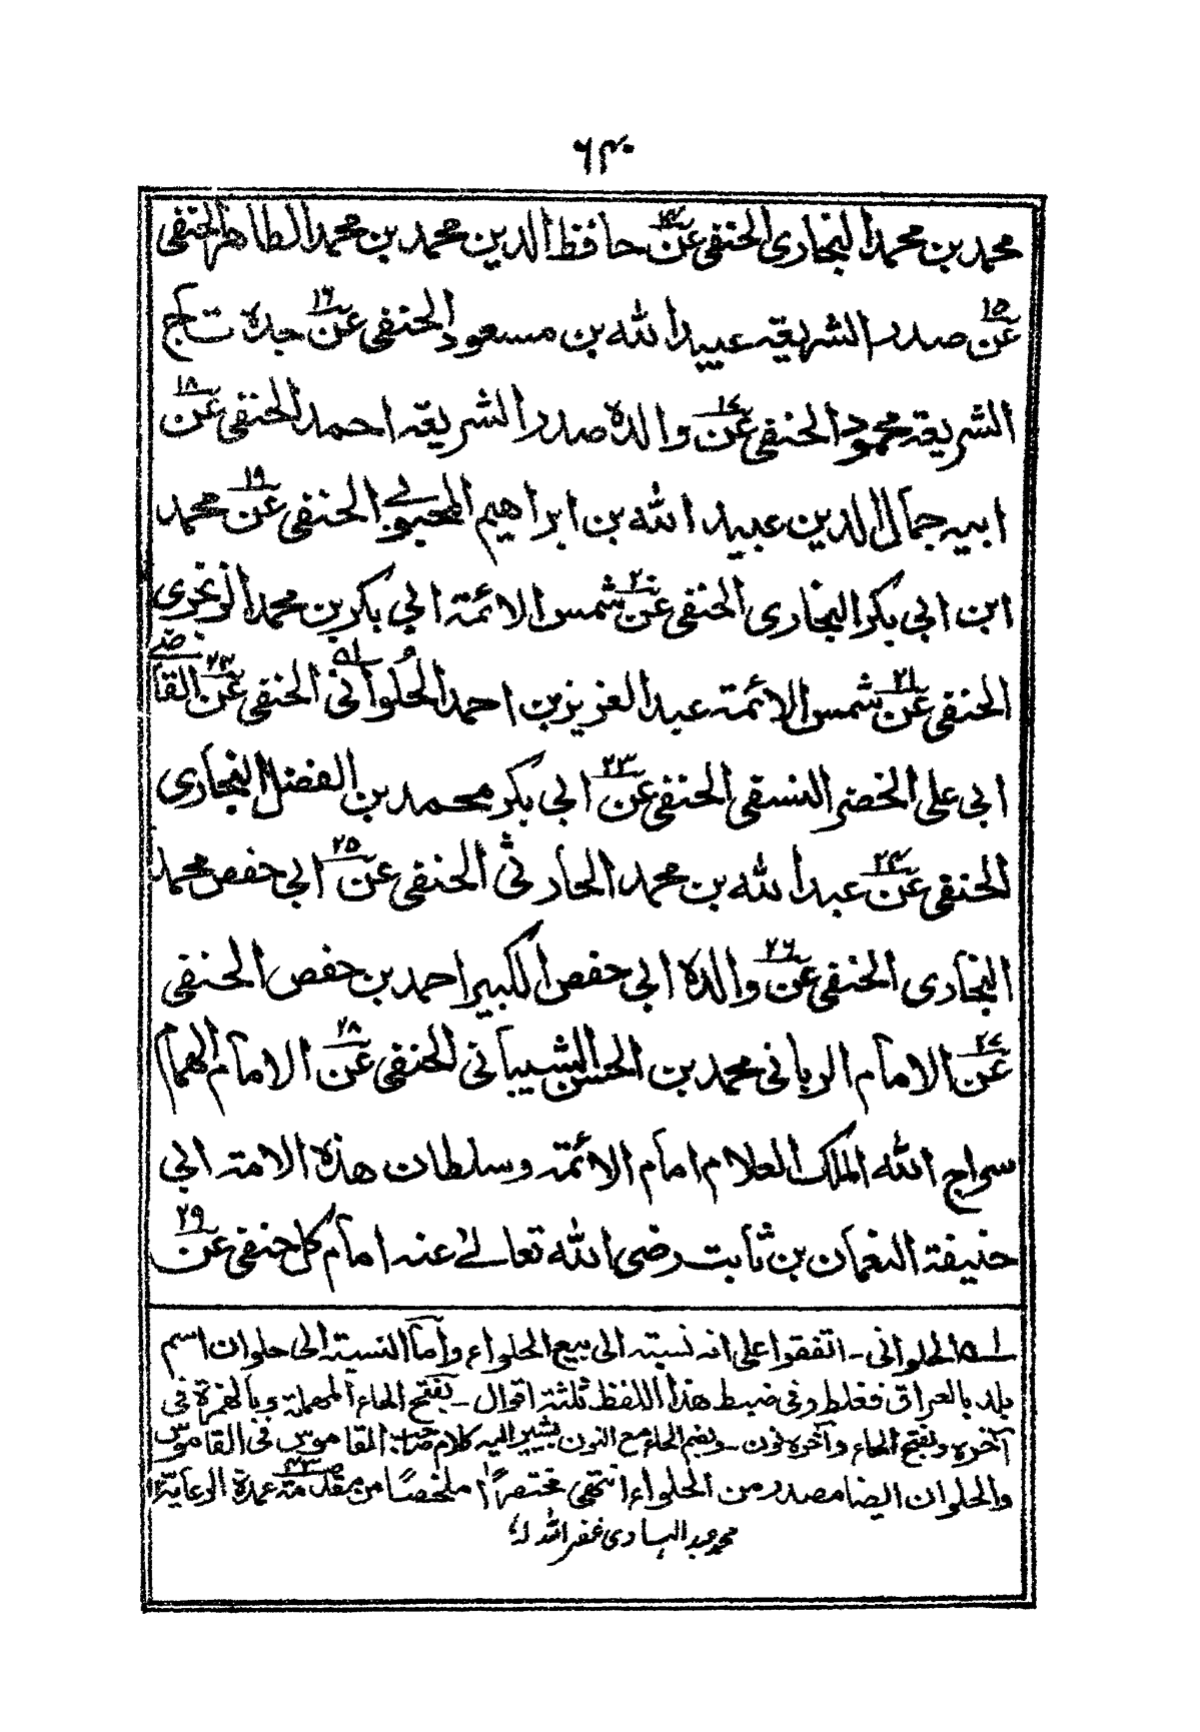 ٦٤٠
محمد بن محمد البخاری الحنفی عن١٤ حافظ الدین محمد بن محمد الطاهر الحنفی
عن١٥ صدر الشریعة عبید الله بن مسعود الحنفی عن١٦ جده تاج
الشریعة محمود الحنفی عن١٧ والده صدر الشریعة احمد الحنفی عن١٨
ابیه جمال الدین عبید الله بن ابراهیم المحبوبی الحنفی عن١٩ محمد
ابن ابی بکر البخاری الحنفی عن٢٠ شمس الائمة ابی بکر بن محمد الزنخری
الحنفی عن٢١ شمس الائمة عبد العزیز بن احمد الحُلوانی١ه الحنفی عن٢٢ القاضی
ابی علی الخضر النسفی الحنفی عن٢٣ ابی بکر محمد بن الفضل البخاری
الحنفی عن٢٤ عبد الله بن محمد الحارثی الحنفی عن٢٥ ابی حفص محمد
البخاری الحنفی عن٢٦ والده ابی حفص الکبیر احمد بن حفص الحنفی
عن٢٧ الامام الربانی محمد بن الحسن الشیبانی الحنفی عن٢٨ الامام الهمام
سراج الله الملک العلام امام الائمة وسلطان هذه الامة ابی
حنیفة النعمان بن ثابت رضی الله تعالیٰ عنه امام کل حنفی عن٢٩
١ه الحلوانی ـ اتفقوا علی انه نسبته الی بیع الحلواء وأما النسبة الی حلوان اسم
بلد بالعراق فغلط وفی ضبط هذا اللفظ ثلثة اقوال ـ بفتح الحاء المهملة وبالهمزة فی
آخره وبفتح الحاء وآخره نون ـ وبضم الحاء مع النون یشیر الیه کلام صاحب القاموس فی القاموس
والحلوان ایضا مصدر من الحلواء انتهی مختصراً ملخصًا من مقدمة عمدة الرعایة
محمد عبد الهادی غفر الله لهٗ